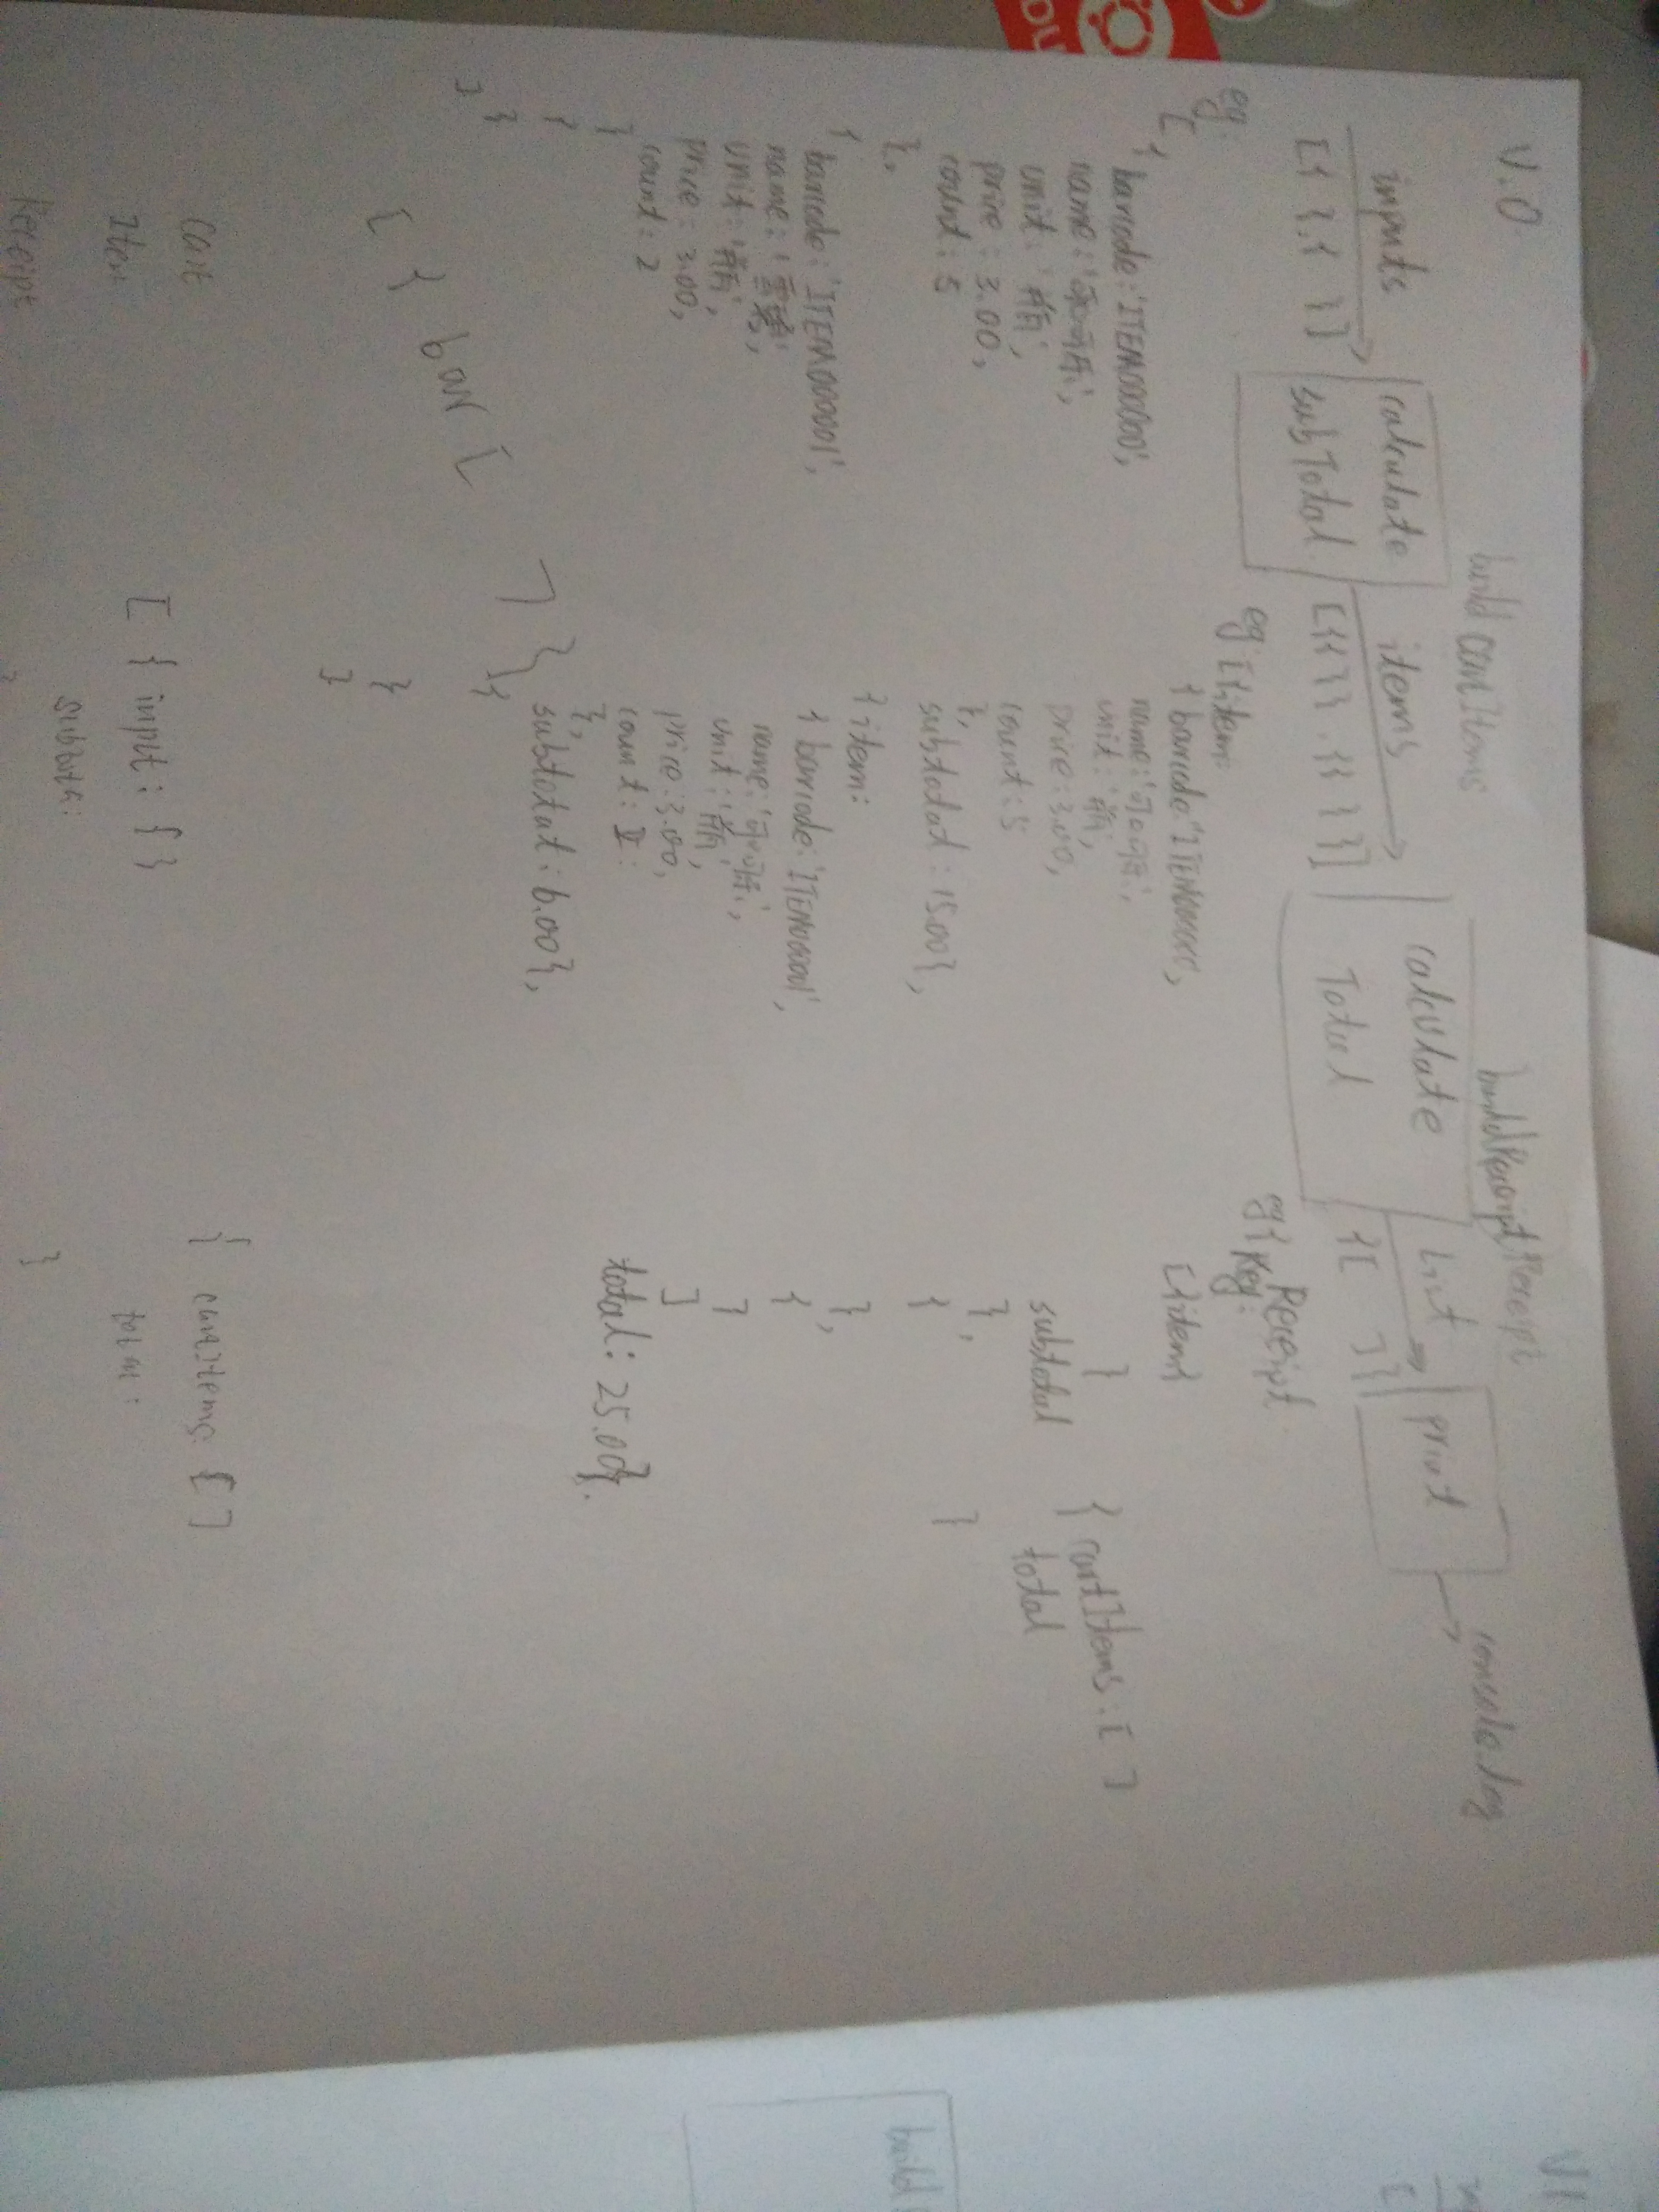 V.0
build CartItems
buildReceipt Receipt
inputs
calculate
subTotal
items
calculate
Total
List
print
console.log
[{ }.{ }]
[{{ }}.{{ }}]
{[ ]}
eg:
[
{ barcode:'ITEM000000',
name:'可口可乐',
unit:'瓶',
price:3.00,
count:5
},
{ barcode:'ITEM000001',
name:'雪碧',
unit:'瓶',
price:3.00,
count:2
}
}
]
eg [{item:
name:'可口可乐',
unit:'瓶',
price:3.00,
count:5
},
subtotal:15.00},
{item:
{barcode:'ITEM000001',
name:'可口可乐',
unit:'瓶',
price:3.00,
count:
},
subtotal:6.00},
eg {
Receipt
key:
[{item{
}
subtotal
},
{
},
{
}
]
total:25.00}.
{cartItems:[ ]
total
}
{ } bar [ ] },
}
}
Cart
Item
Receipt
[ { input: { }
{ cartItems: [ ]
total:
}
build
V1